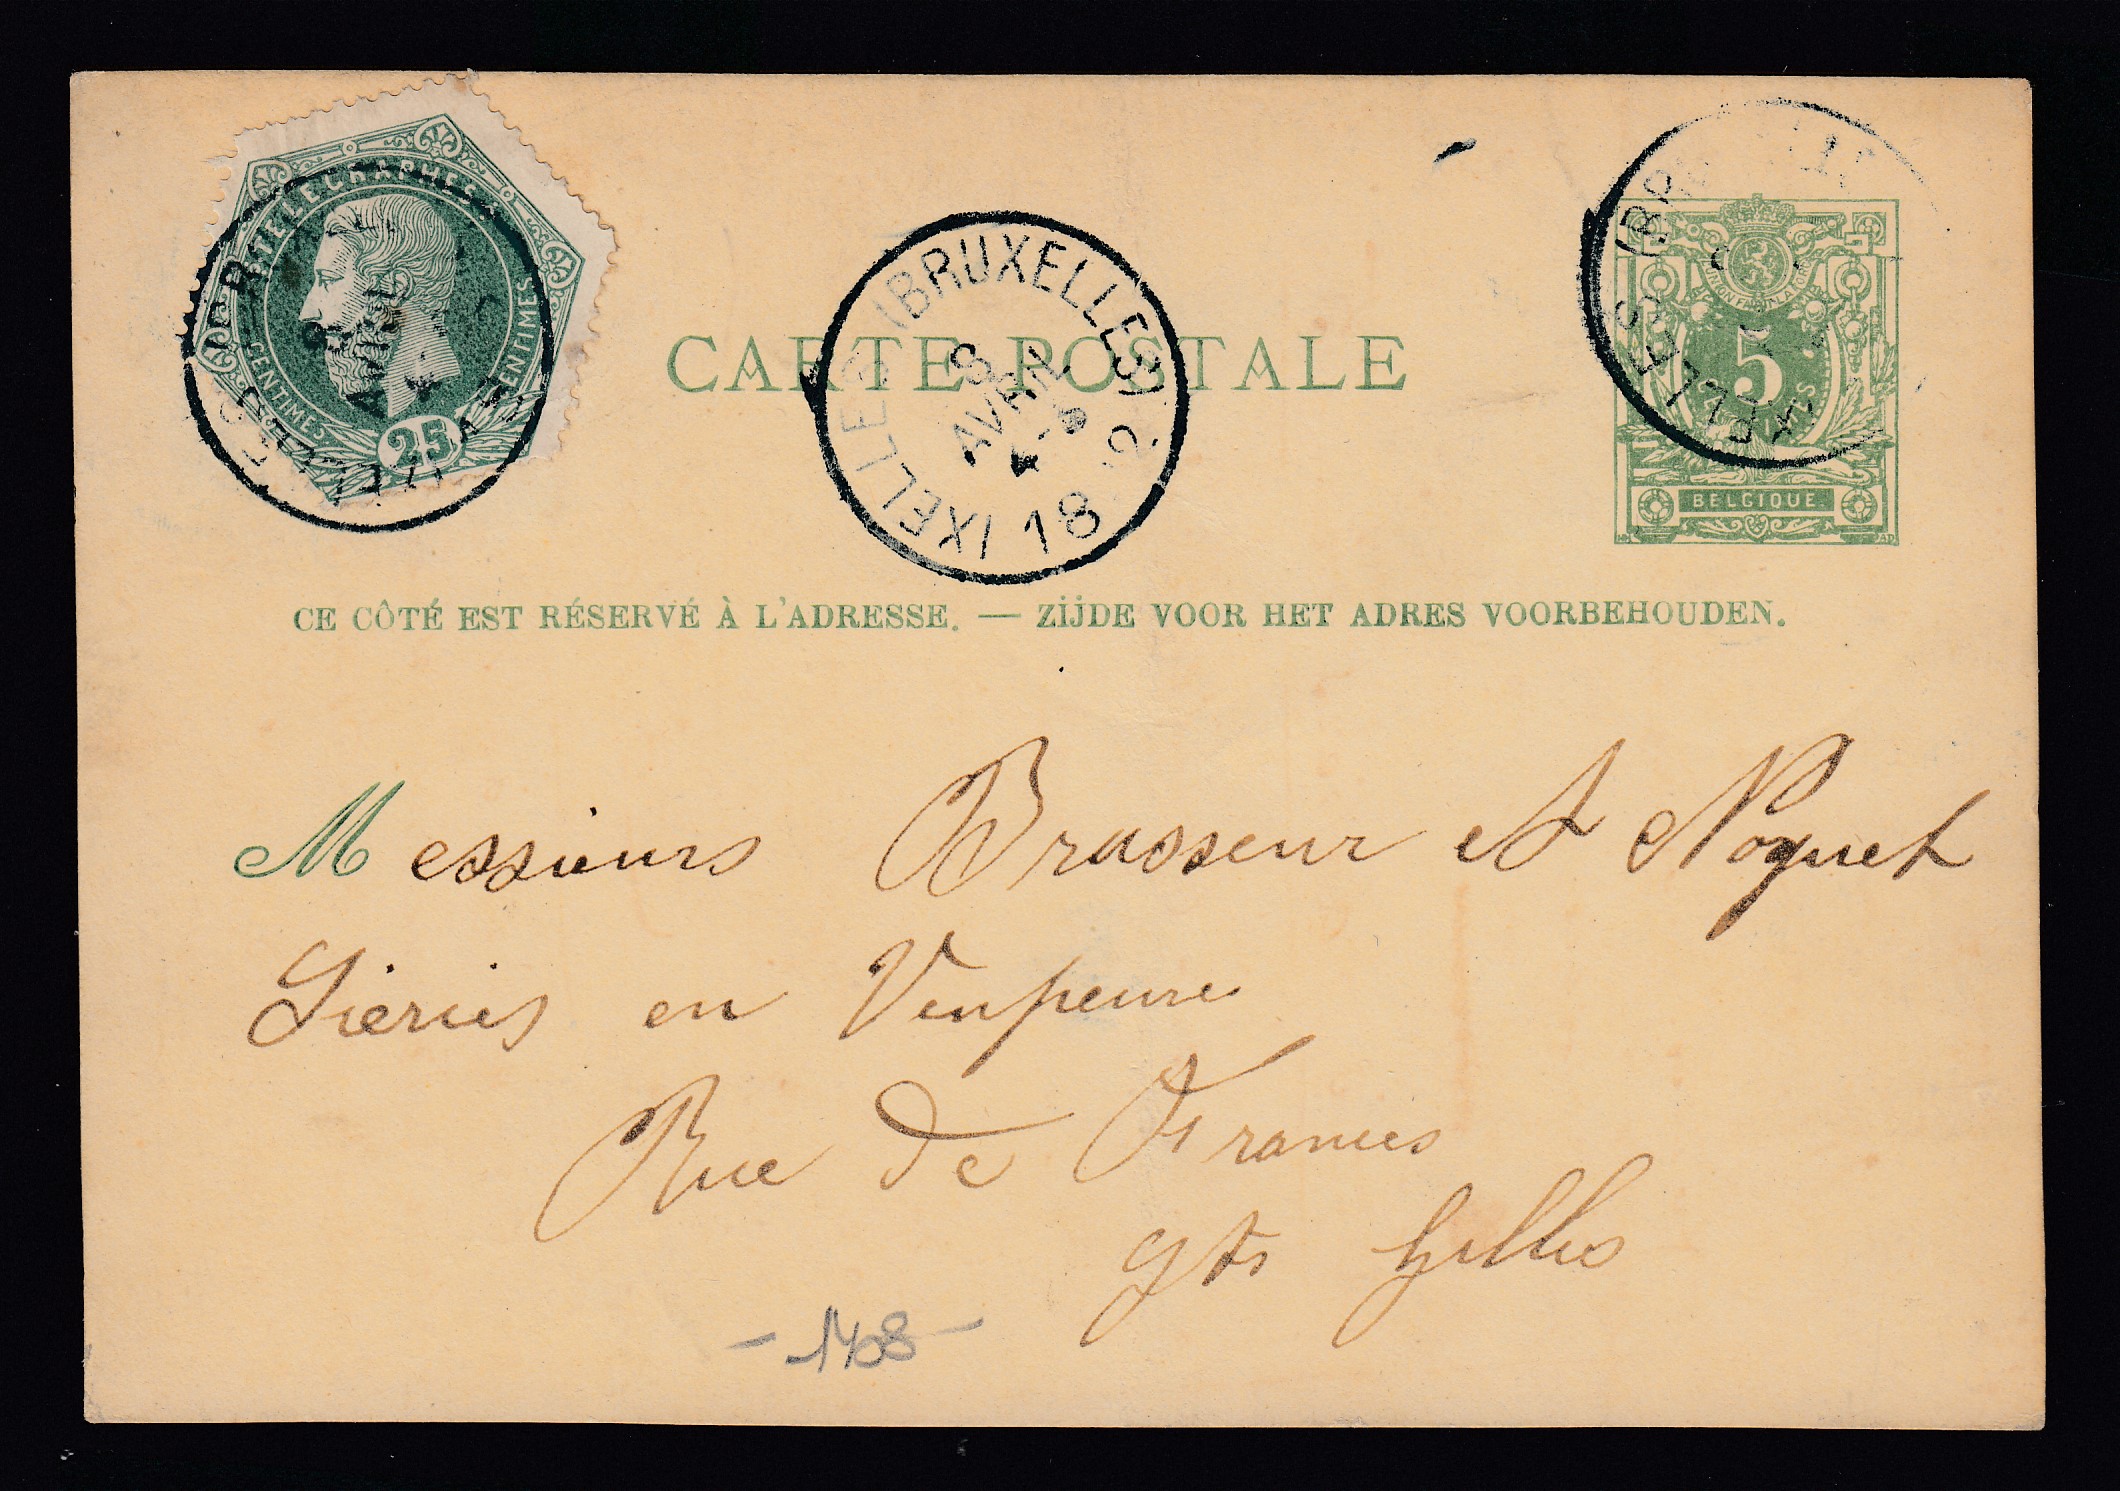 TÉLÉGRAPHES
CENTIMES CENTIMES
25
IXELLES (BRUXELLES)
8
AVRIL
4-S
18
CARTE POSTALE
IXELLES (BRUXELLES)
5
CENTIMES
BELGIQUE
CE CÔTÉ EST RÉSERVÉ À L'ADRESSE. — ZIJDE VOOR HET ADRES VOORBEHOUDEN.
Messieurs Brasseur et Noquet
en
Rue de France
Gilles
- 1408 -